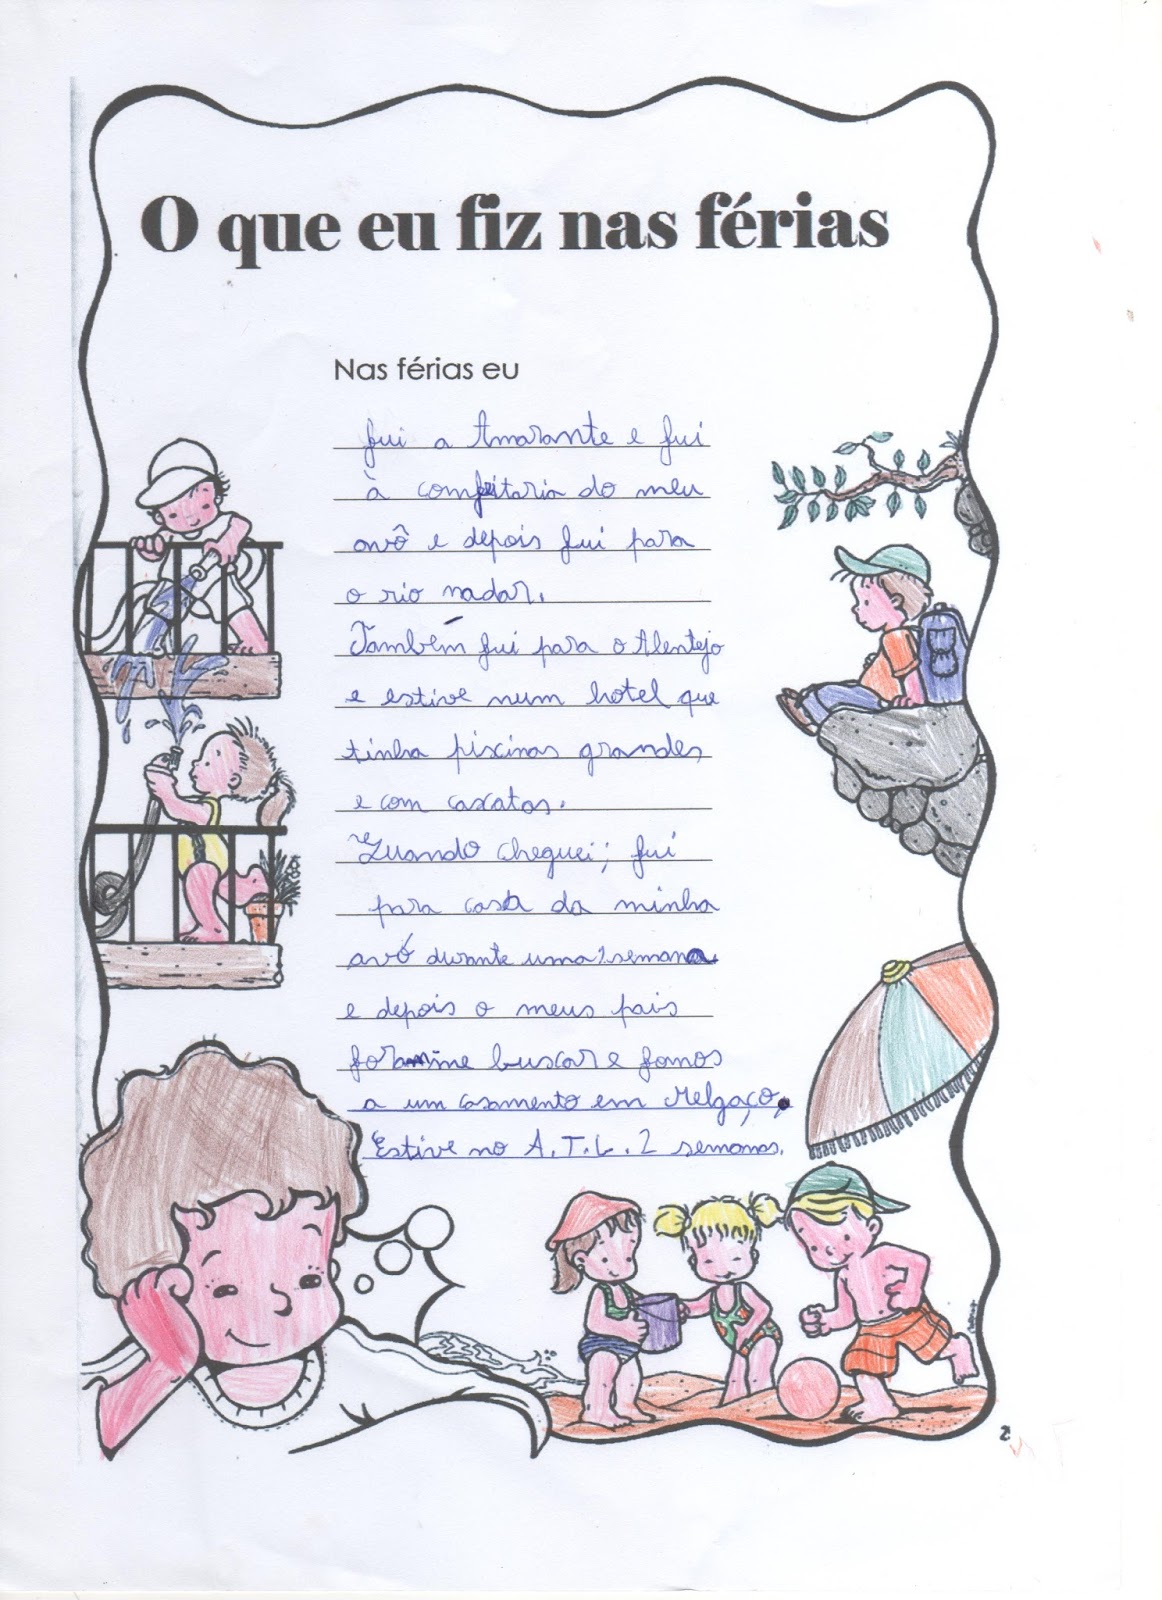 O que eu fiz nas férias
Nas férias eu
fui a Amarante e fui
à confeitaria do meu
avô e depois fui para
o rio nadar.
Também fui para o Alentejo
e estive num hotel que
tinha piscinas grandes
e com cascatas.
Quando cheguei, fui
para casa da minha
avó durante uma semana
e depois o meus pais
foram-me buscar e fomos
a um casamento em Melgaço.
Estive no A.T.L. 2 semanas.
2